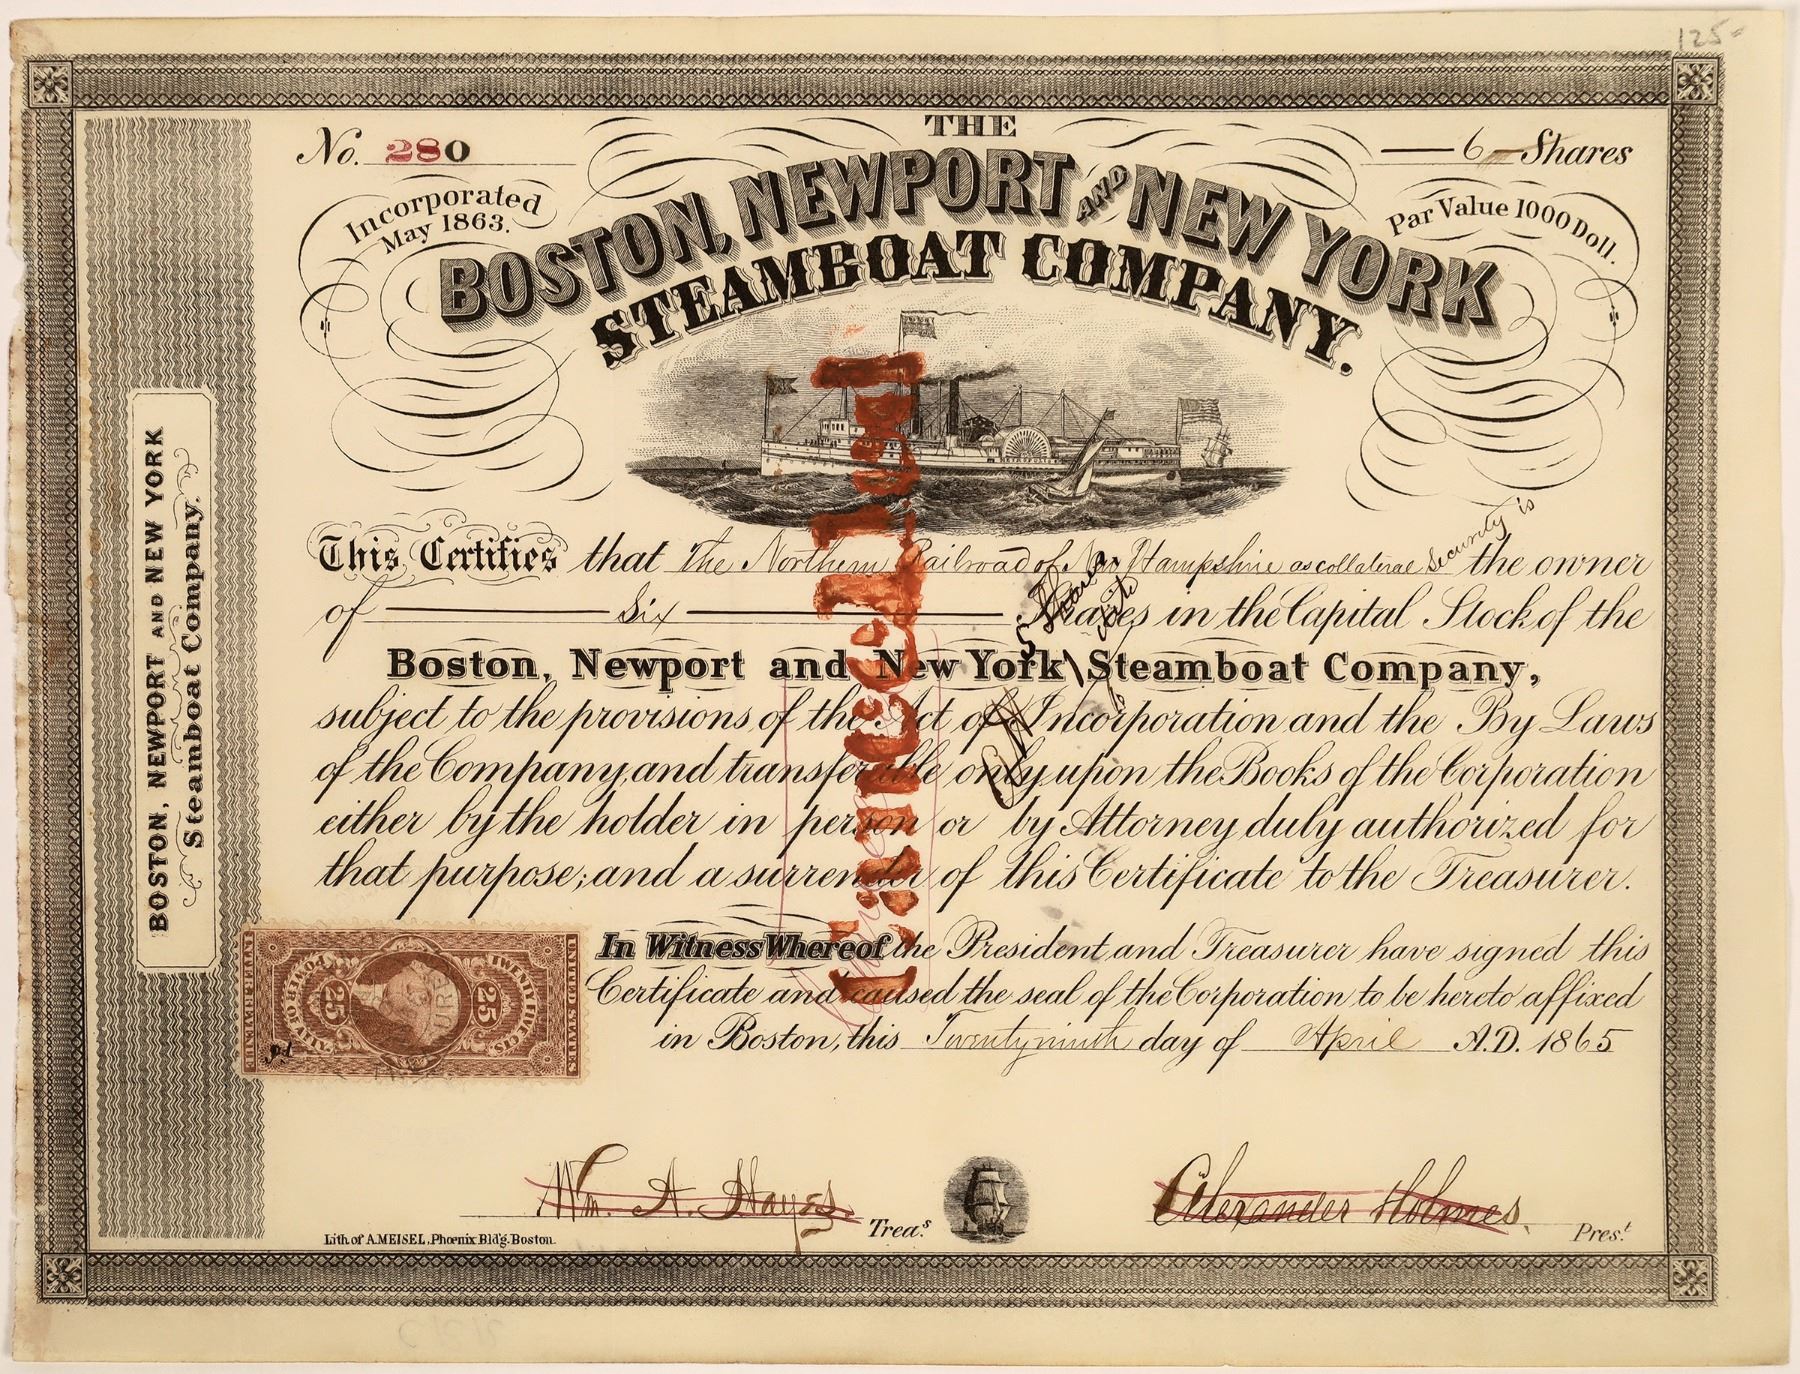 125-
No. 280
6 Shares
Incorporated
May 1863.
Par Value 1000 Doll.
THE
BOSTON, NEWPORT AND NEW YORK
STEAMBOAT COMPANY.
BOSTON, NEWPORT AND NEW YORK
Steamboat Company.
This Certifies that The Northern Railroad of New Hampshire as collateral Security is the owner
of Six Shares in the Capital Stock of the
Boston, Newport and New York Steamboat Company,
subject to the provisions of the Act of Incorporation and the By Laws
of the Company, and transferable only upon the Books of the Corporation
either by the holder in person or by Attorney duly authorized for
that purpose; and a surrender of this Certificate to the Treasurer.
Cancelled
In Witness Whereof the President and Treasurer have signed this
Certificate and caused the seal of the Corporation to be hereto affixed
in Boston, this Twentyninth day of April A.D. 1865
UNITED STATES
TWENTY FIVE CTS
25
25
POWER OF ATT'Y
INTER. REVENUE
Wm. A. Hayes. Treas.
Alexander Holmes. Prest.
Lith. of A. MEISEL, Phœnix Bld'g. Boston.